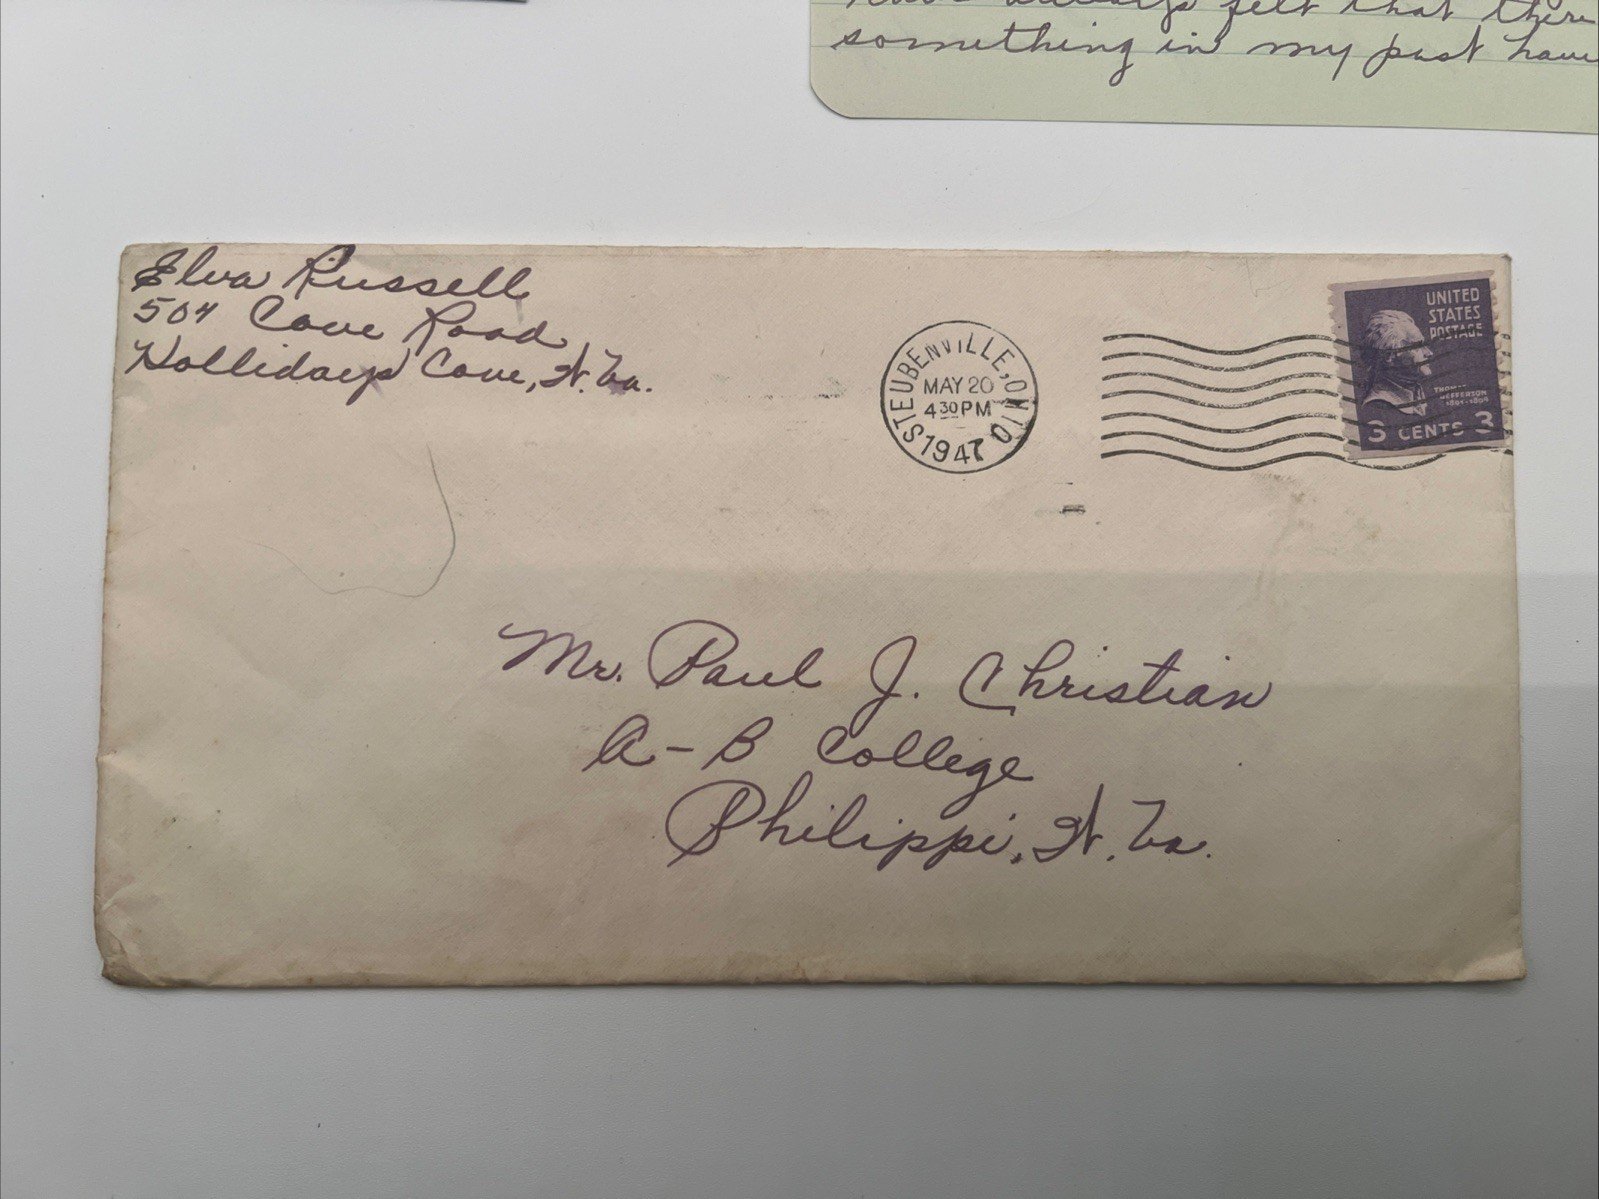 always felt that there
something in my past have
Elva Russell
504 Cove Road
Hollidays Cove, W. Va.
STEUBENVILLE, OHIO
MAY 20
4 30 PM
1947
UNITED
STATES
POSTAGE
THOMAS
JEFFERSON
1801-1809
3 CENTS 3
Mr. Paul J. Christian
A-B College
Philippi, W. Va.